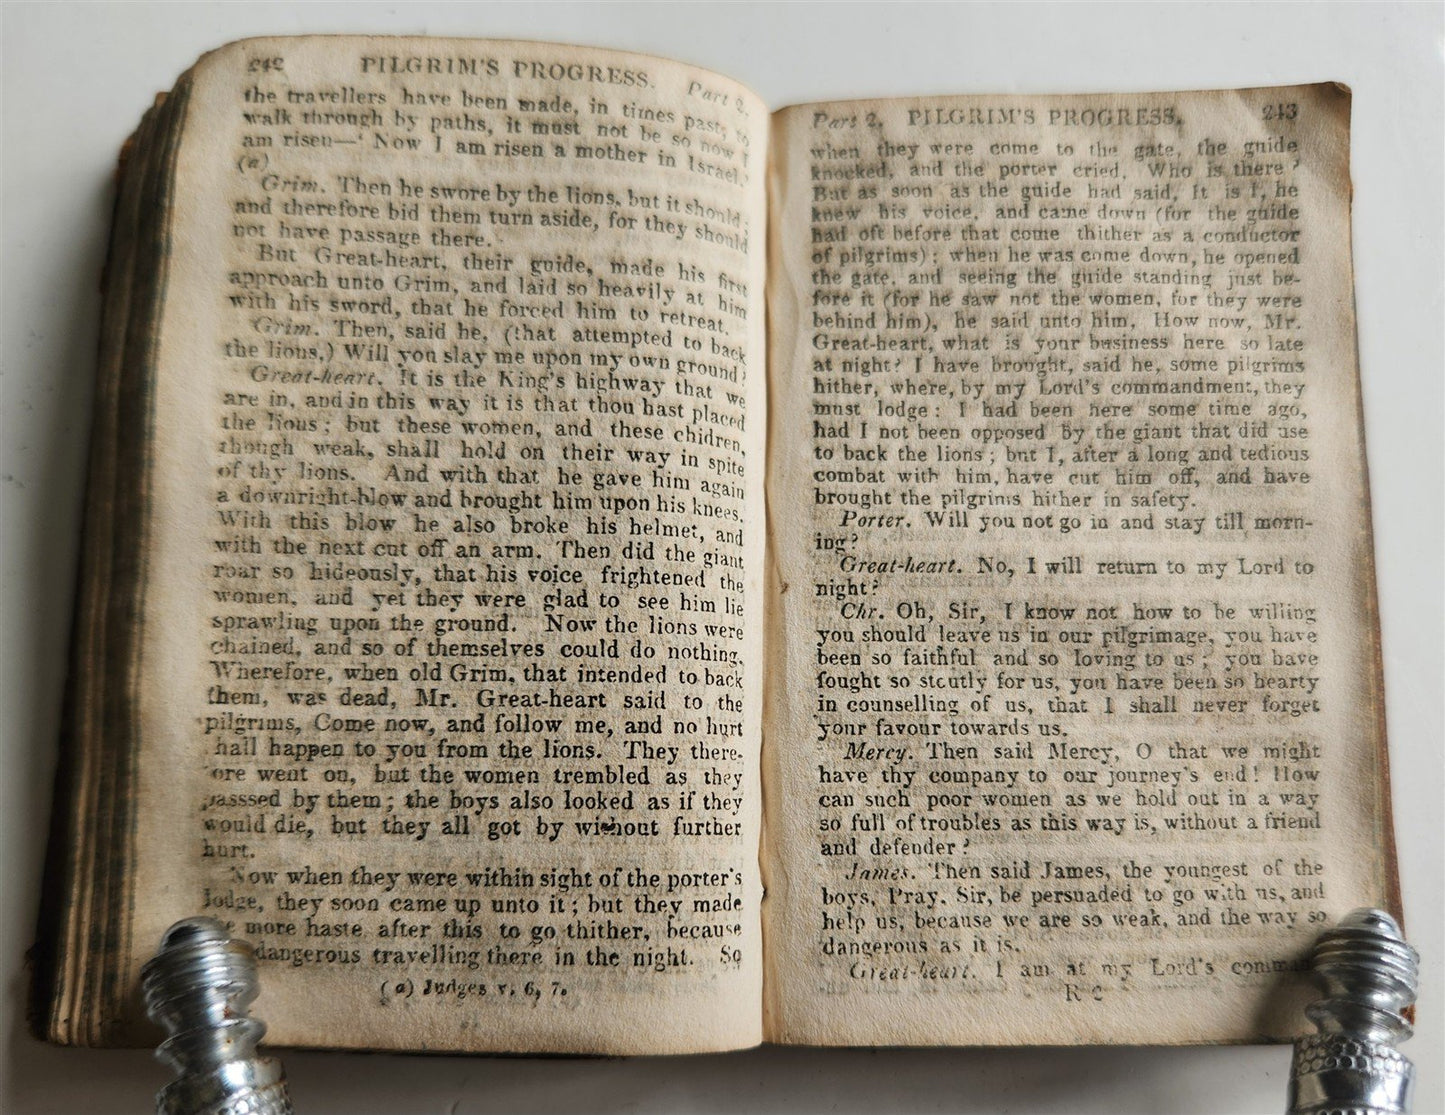 242 PILGRIM'S PROGRESS. Part 2.
the travellers have been made, in times past, to
walk through by paths, it must not be so now I
am risen—' Now I am risen a mother in Israel.'
(a)
Grim. Then he swore by the lions, but it should;
and therefore bid them turn aside, for they should
not have passage there.
But Great-heart, their guide, made his first
approach unto Grim, and laid so heavily at him
with his sword, that he forced him to retreat.
Grim. Then, said he, (that attempted to back
the lions,) Will you slay me upon my own ground?
Great-heart. It is the King's highway that we
are in, and in this way it is that thou hast placed
the lions; but these women, and these chidren,
though weak, shall hold on their way in spite
of thy lions. And with that he gave him again
a downright-blow and brought him upon his knees.
With this blow he also broke his helmet, and
with the next cut off an arm. Then did the giant
roar so hideously, that his voice frightened the
women, and yet they were glad to see him lie
sprawling upon the ground. Now the lions were
chained, and so of themselves could do nothing.
Wherefore, when old Grim, that intended to back
them, was dead, Mr. Great-heart said to the
pilgrims, Come now, and follow me, and no hurt
hall happen to you from the lions. They there-
ore went on, but the women trembled as they
passsed by them; the boys also looked as if they
would die, but they all got by without further
hurt.
Now when they were within sight of the porter's
lodge, they soon came up unto it; but they made
e more haste after this to go thither, because
dangerous travelling there in the night. So
(a) Judges v. 6, 7.
Part 2. PILGRIM'S PROGRESS. 243
when they were come to the gate, the guide
knocked, and the porter cried, Who is there?
But as soon as the guide had said, It is I, he
knew his voice, and came down (for the guide
had oft before that come thither as a conductor
of pilgrims); when he was come down, he opened
the gate, and seeing the guide standing just be-
fore it (for he saw not the women, for they were
behind him), he said unto him, How now, Mr.
Great-heart, what is your business here so late
at night? I have brought, said he, some pilgrims
hither, where, by my Lord's commandment, they
must lodge: I had been here some time ago,
had I not been opposed by the giant that did use
to back the lions; but I, after a long and tedious
combat with him, have cut him off, and have
brought the pilgrims hither in safety.
Porter. Will you not go in and stay till morn-
ing?
Great-heart. No, I will return to my Lord to
night?
Chr. Oh, Sir, I know not how to be willing
you should leave us in our pilgrimage, you have
been so faithful and so loving to us; you have
fought so stoutly for us, you have been so hearty
in counselling of us, that I shall never forget
your favour towards us.
Mercy. Then said Mercy, O that we might
have thy company to our journey's end! How
can such poor women as we hold out in a way
so full of troubles as this way is, without a friend
and defender?
James. Then said James, the youngest of the
boys, Pray, Sir, be persuaded to go with us, and
help us, because we are so weak, and the way so
dangerous as it is.
Great-heart. I am at my Lord's comman
R 2